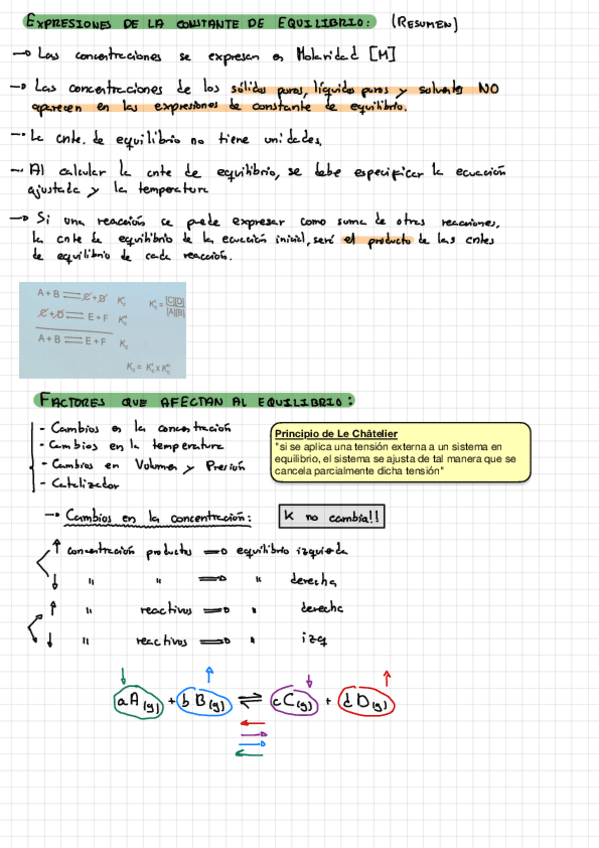 EXPRESIONES DE LA CONSTANTE DE EQUILIBRIO: (RESUMEN)
→ Las concentraciones se expresan en Molaridad [M]
→ Las concentraciones de los sólidos puros, líquidos puros y solventes NO
aparecen en las expresiones de constante de equilibrio.
→ La cnte. de equilibrio no tiene unidades,
→ Al calcular la cnte de equilibrio, se debe especificar la ecuación
ajustada y la temperatura
→ Si una reacción se puede expresar como suma de otras reacciones,
la cnte de equilibrio de la ecuación inicial, será el producto de las cntes
de equilibrio de cada reacción.
A + B ⇌ C + D K'c K'c = [C][D] / [A][B]
C + D ⇌ E + F K''c
A + B ⇌ E + F Kc
Kc = K'c x K''c
FACTORES QUE AFECTAN AL EQUILIBRIO:
- Cambios en la concentración
- Cambios en la temperatura
- Cambios en Volumen y Presión
- Catalizador
Principio de Le Châtelier
"si se aplica una tensión externa a un sistema en
equilibrio, el sistema se ajusta de tal manera que se
cancela parcialmente dicha tensión"
→ Cambios en la concentración: K no cambia!!
↑ concentración productos ⇒ equilibrio izquierda
↓ " " ⇒ " derecha
↑ " reactivos ⇒ " derecha
↓ " reactivos ⇒ " izq
aA(g) + bB(g) ⇌ cC(g) + dD(g)